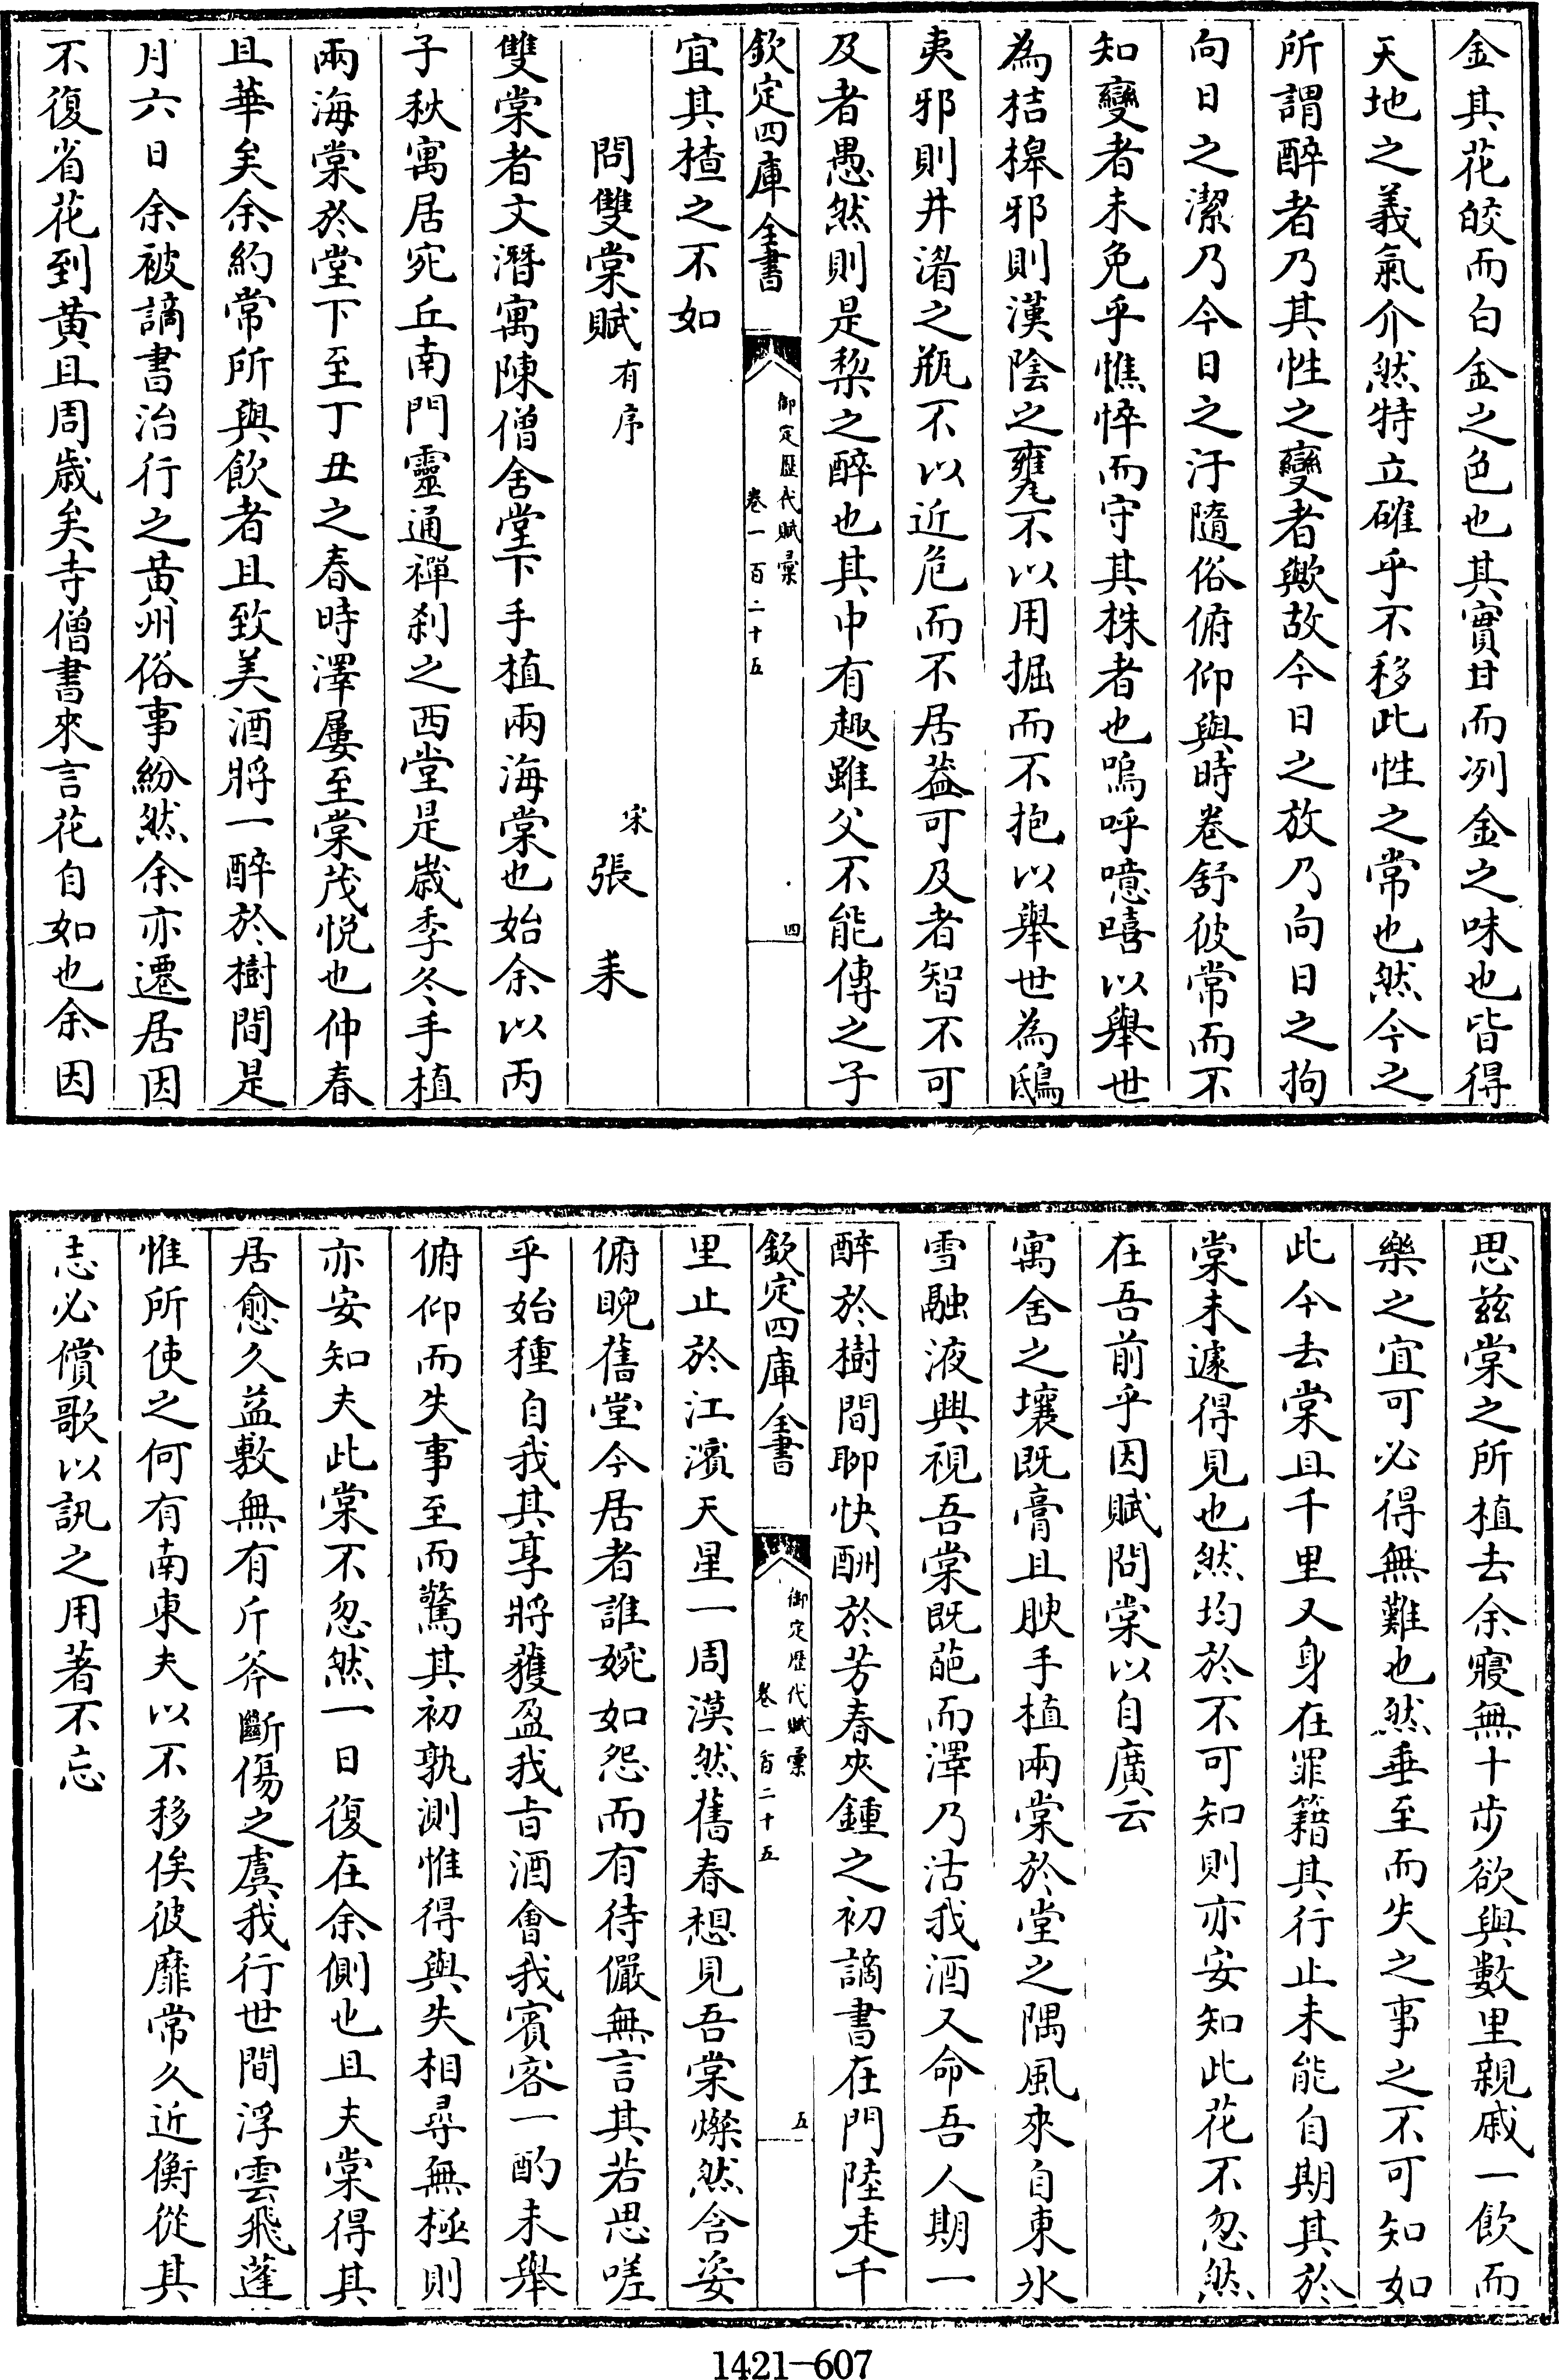 金其花皎而白金之色也其實甘而冽金之味也皆得
天地之義氣介然特立確乎不移此性之常也然今之
所謂醉者乃其性之變者歟故今日之放乃向日之拘
向日之潔乃今日之汙隨俗俯仰與時卷舒彼常而不
知變者未免乎憔悴而守其株者也嗚呼噫嘻以舉世
為桔槹邪則漢陰之甕不以用掘而不抱以舉世為鴟
夷邪則井渚之瓶不以近危而不居葢可及者智不可
及者愚然則是棃之醉也其中有趣雖父不能傳之子
欽定四庫全書
御定歴代賦彙
卷一百二十五
四
宜其楂之不如
問雙棠賦有序
宋張耒
雙棠者文潛寓陳僧舍堂下手植兩海棠也始余以丙
子秋寓居宛丘南門靈通禪刹之西堂是歲季冬手植
兩海棠於堂下至丁丑之春時澤屢至棠茂悅也仲春
且華矣余約常所與飲者且致美酒將一醉於樹間是
月六日余被謫書治行之黄州俗事紛然余亦遷居因
不復省花到黄且周歲矣寺僧書來言花自如也余因
思茲棠之所植去余寢無十步欲與數里親戚一飲而
樂之宜可必得無難也然垂至而失之事之不可知如
此今去棠且千里又身在罪籍其行止未能自期其於
棠未遽得見也然均於不可知則亦安知此花不忽然
在吾前乎因賦問棠以自廣云
寓舍之壤既膏且腴手植兩棠於堂之隅風來自東氷
雪融液興視吾棠既葩而澤乃沽我酒又命吾人期一
醉於樹間聊快酬於芳春夾鍾之初謫書在門陸走千
欽定四庫全書
御定歴代賦彙
卷一百二十五
五
里止於江濱天星一周漠然舊春想見吾棠燦然含姿
俯睨舊堂今居者誰婉如怨而有待儼無言其若思嗟
乎始種自我其享將獲盈我㫖酒會我賓客一酌未舉
俯仰而失事至而驚其初孰測惟得與失相尋無極則
亦安知夫此棠不忽然一日復在余側也且夫棠得其
居愈久益敷無有斤斧斷傷之虞我行世間浮雲飛蓬
惟所使之何有南東夫以不移俟彼靡常久近衡從其
志必償歌以訊之用著不忘
1421-607